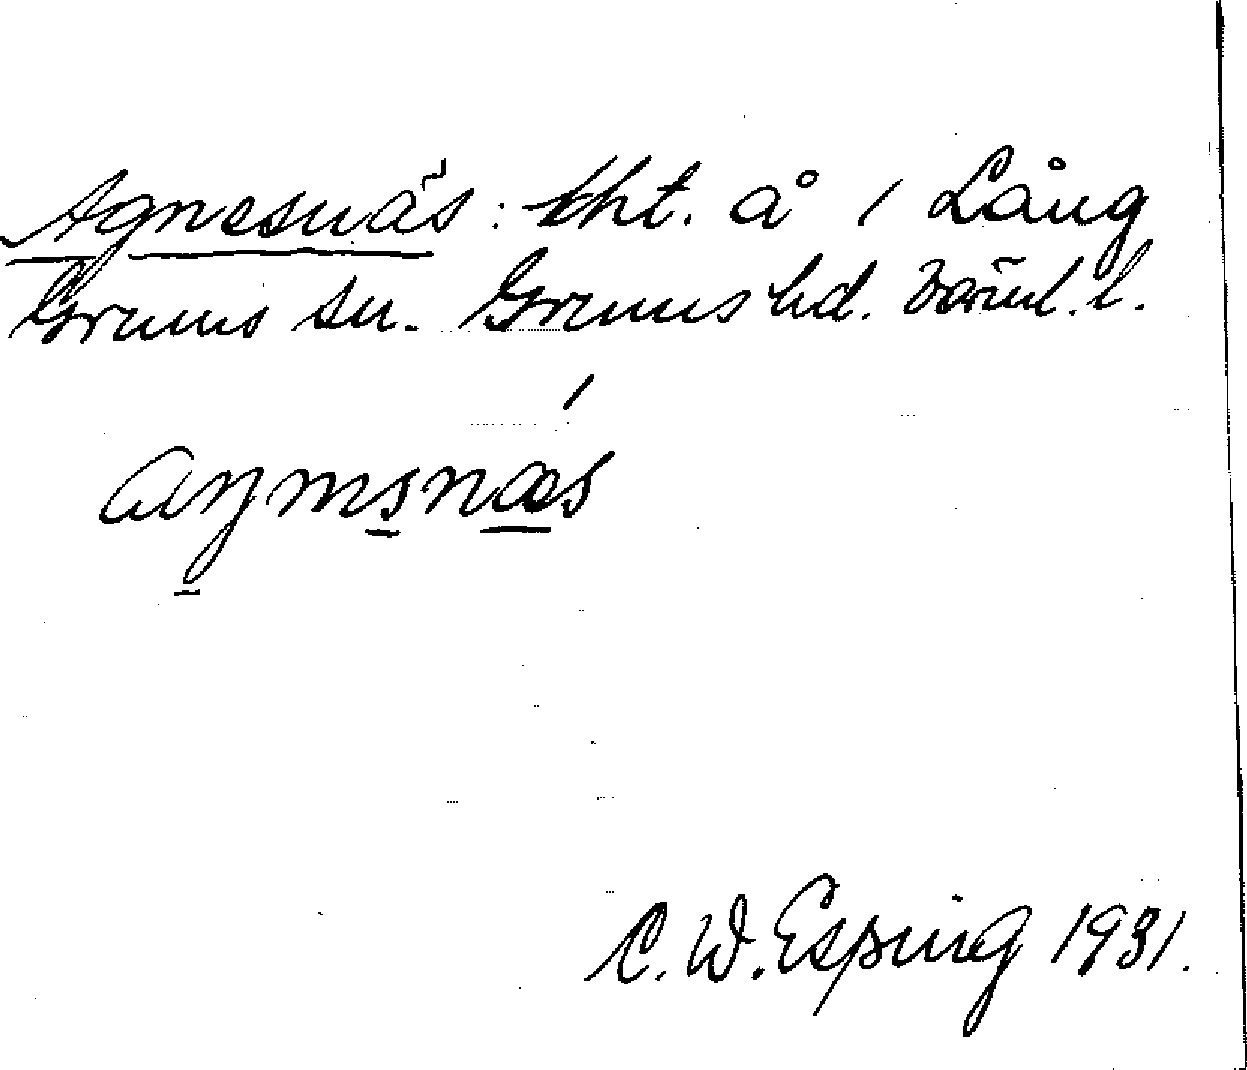 Agnesnäs: tht. å 1 Lång
Grums sn. Grums hd. Värml. l.
C. W. Esping 1931.